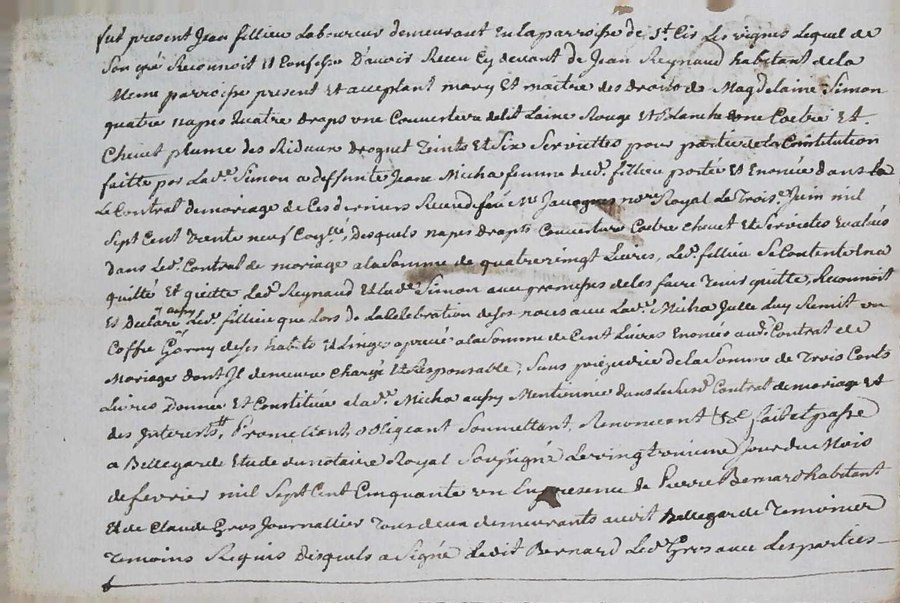 fut present Jean fillieu Laboureur demeurant En la parroisse de St. Cir Les vignes Lequel de
Son gré Reconnoit Et Confesse D'avoir Receu Cy devant de Jean Reynaud habitant de la
meme parroisse present Et acceptant mary Et maitre des droits de Magdelaine Simon
quatre napes quatre draps une Couverture de lit Laine Rouge Et blanche une Coetre Et
Chevet plume des Rideaux droguet Teints Et Six Serviettes pour partie de la Constitution
faitte par Lade. Simon a deffunte Jeane Micha femme dud. fillieu portée Et Enoncée dans la
Le Contrat de mariage de Ces derniers Receu Me Jacognes nore. Royal Le Trois e. Juin mil
Sept Cent Trente neuf desquels napes draps Couverture Coetre chevet Et Serviettes Evalués
dans Led. Contrat de mariage a la Somme de quatre vingt Livres, Led. fillieu Se Contente En a
quitté Et quitte Led. Reynaud Et Lade. Simon avec promesse de les faire Tenir quitte, Reconnoit
Et Declare aussy Led. fillieu que Lors de La Celebration de Ses noces avec Lad. Micha Elle Luy Remit un
Coffre Garny de Ses habits Et Linges apreciés a la Somme de Cent Livres Enoncés aud. Contrat de
Mariage dont Il demeure Chargé Et Responsable, Sans prejudice de la Somme de Trois Cents
Livres Donnée Et Constituée a lad. Micha aussy Mentionnée dans Le Susd. Contrat de mariage Et
des Interets, Promettant, obligeant Soumettant, Renoncant &c fait Et passé
a Bellegarde Etude du notaire Royal Soussigné Le vingt troisieme Jour du Mois
de fevrier mil Sept Cent Cinquante un En presence de Pierre Bernard habitant
Et de Claude Gros Journallier Tous deux demeurants audit Bellegarde
Temoins Requis Desquels a Signé Ledit Bernard Led. Gros avec Les parties